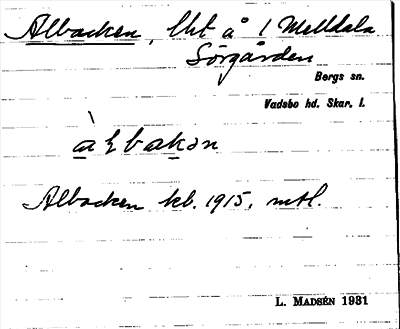 Albacken, lht å 1 Melldala
Sörgården
Bergs sn.
Vadsbo hd. Skar. l.
àƚbakǝn
Albacken kb. 1915, mtl.
L. MADSÉN 1931